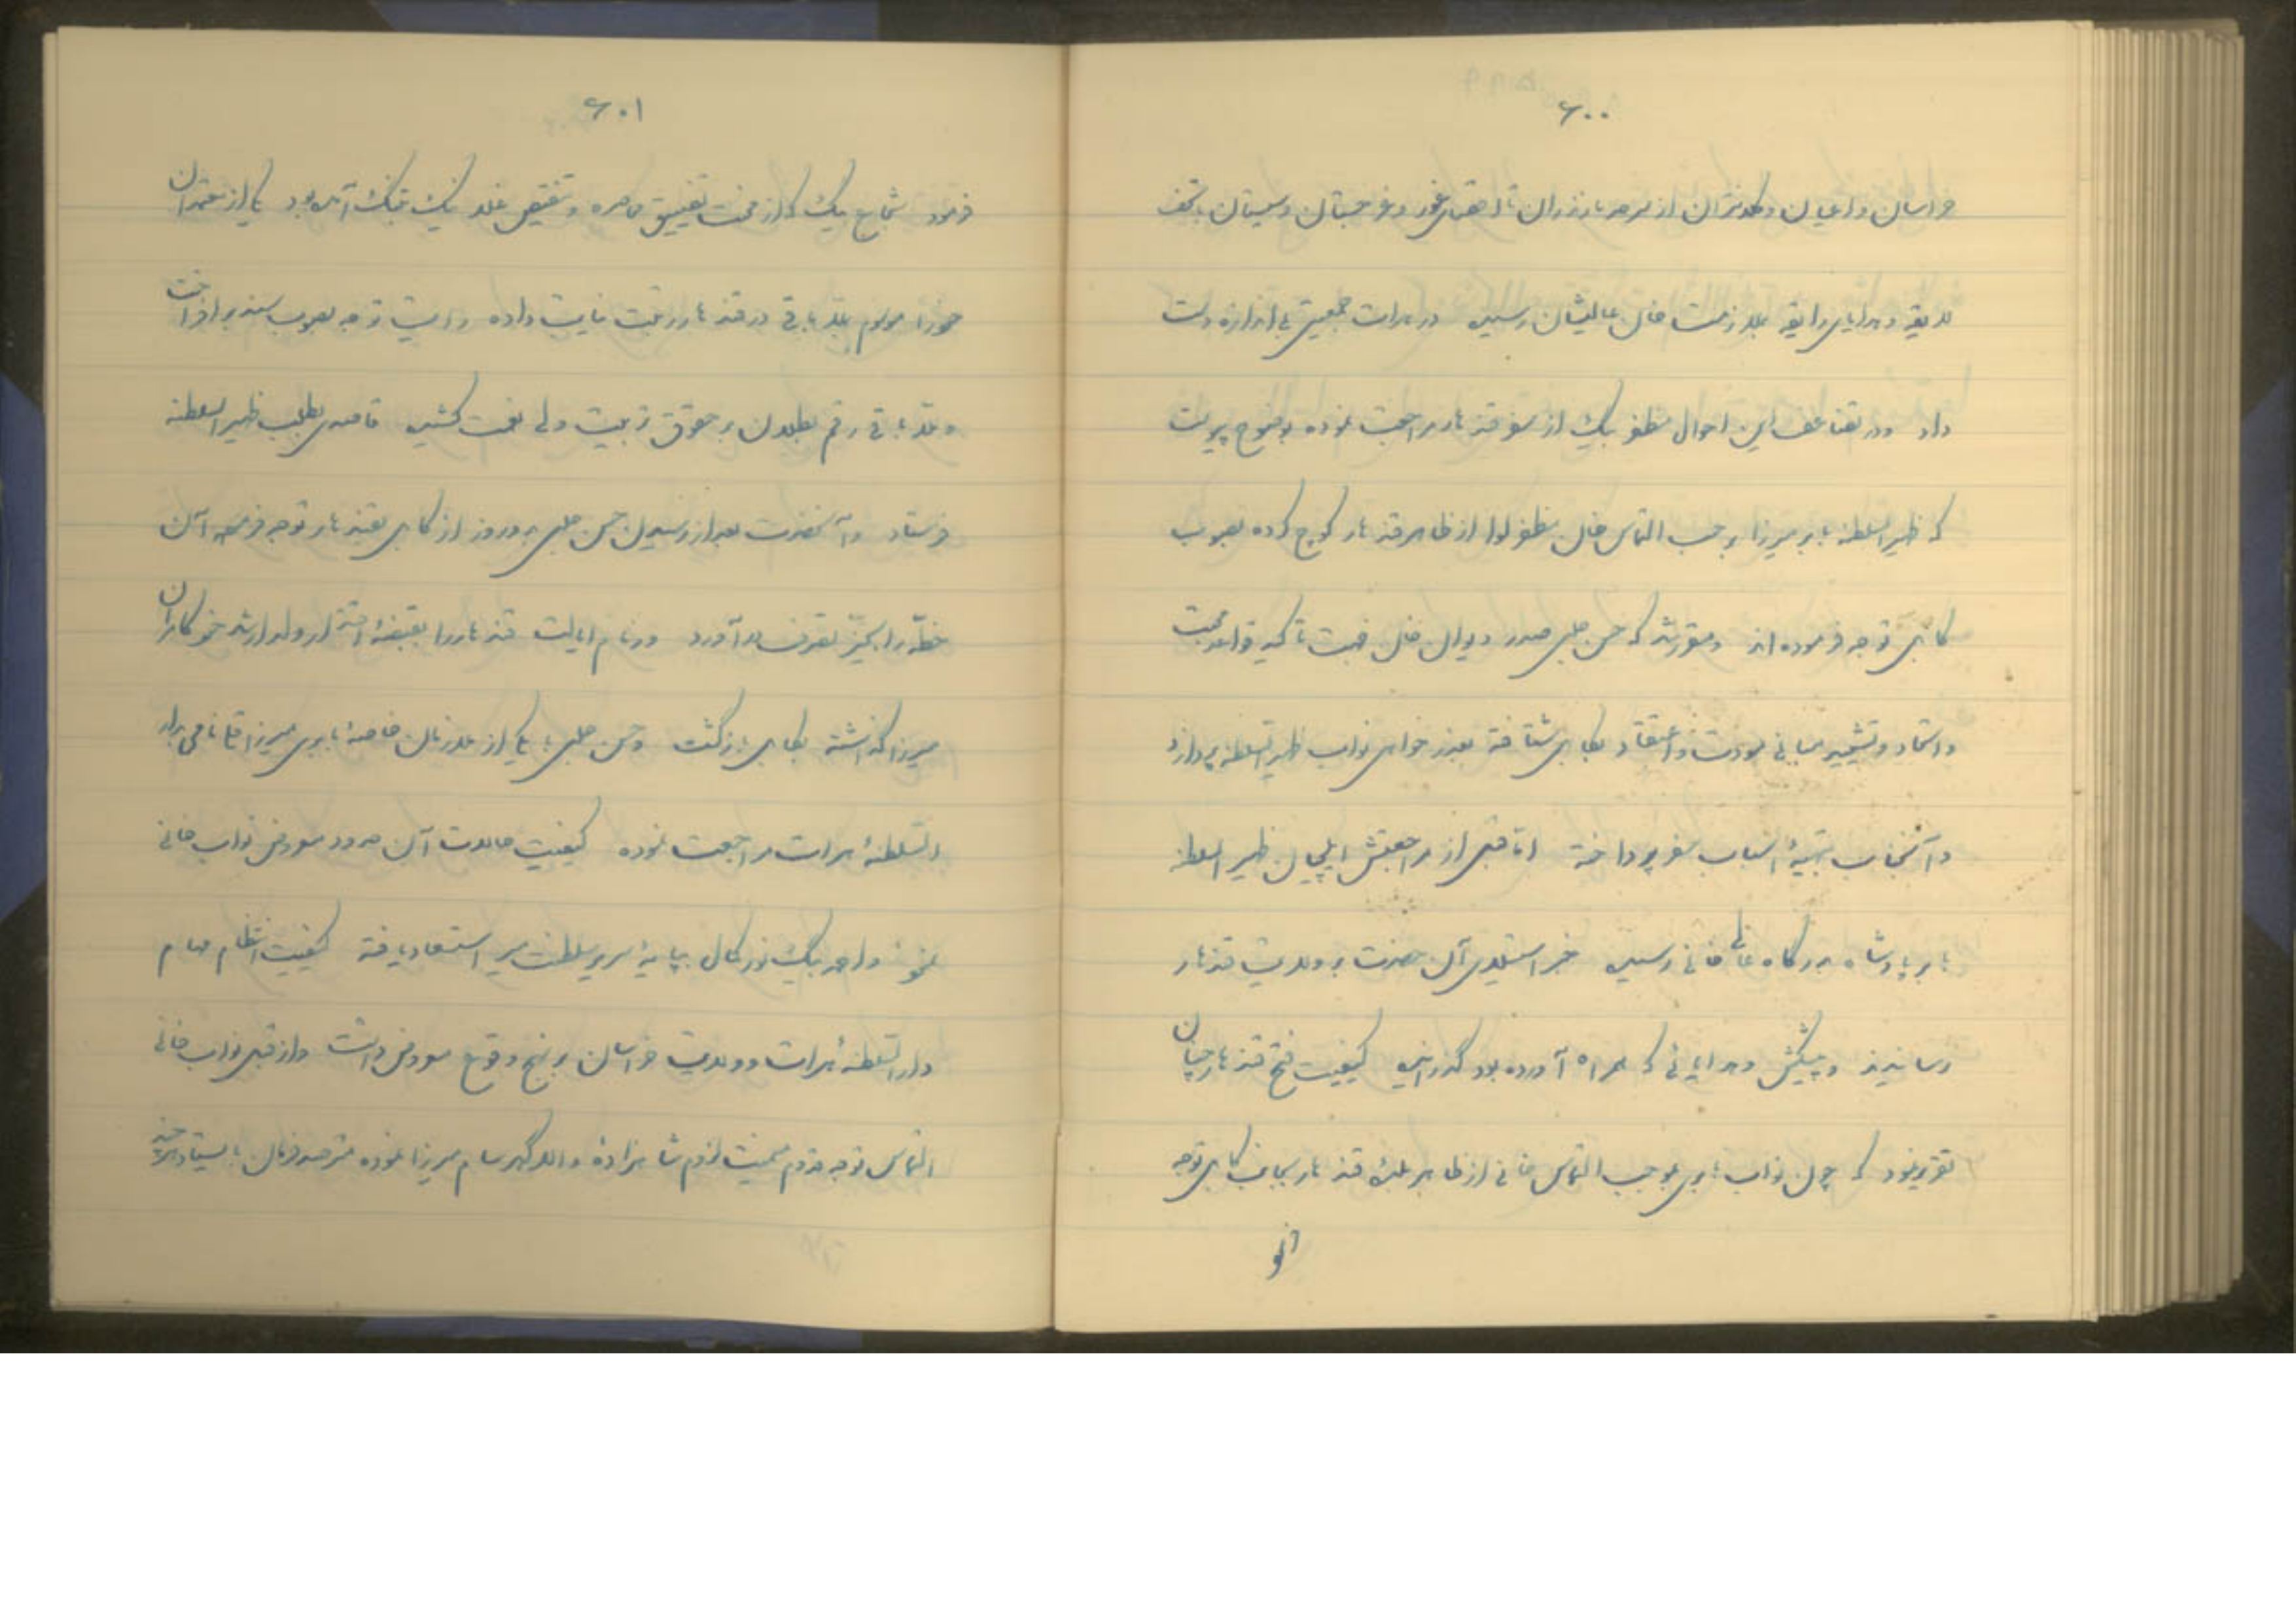 ۶۰۰
خراسان و اعیان و کلانتران از سرحد مازندران تا اقصای غور و غرجستان و سیستان بتحف
لایقه و هدایای رایقه بملازمت خان عالیشان رسیده در هرات جمعیتی بی اندازه دست
داد و در تضاعف این احوال مظفر بیک از سفر قندهار مراجعت نموده بوضوح پیوست
که ظهیر السلطنه بابر میرزا بر حسب التماس خان مظفر لوا از ظاهر قندهار کوچ کرده بصوب
کابل توجه فرموده اند و مقرر شد که حسن چلبی صدر دیوان خان جهت تأکید قواعد محبت
و اتحاد و تشیید مبانی مودت و اعتقاد بکابل شتافته بعذر خواهی نواب ظهیر السلطنه پردازد
و آنجناب بتهیهٔ اسباب سفر پرداخته اما قبل از مراجعتش ایلچیان ظهیر السلطنه
بابر پادشاه بدرگاه عالی خانی رسیده خبر استیلای آن حضرت بر ولایت قندهار
رسانیدند و پیشکش و هدایائی که همراه آورده بود گذرانیده کیفیت فتح قندهار چنان
تقریر نمود که چون نواب بابری بموجب التماس خانی از ظاهر بلدهٔ قندهار بجانب کابل توجه
فرمود شجاع بیک که از محنت تضییق محاصره و تنقیص غله نیک بتنگ آمده بود یکی از معتمدان
۶۰۱
خود را موسوم بملا باقی در قندهار رتبت نیابت داده رایت توجه بصوب سند بر افراخت
و ملا باقی رقم بطلان بر حقوق تربیت ولی نعمت کشیده قاصدی بطلب ظهیر السلطنه
فرستاد و آنحضرت بعد از رسیدن حسن چلبی بدو روز از کابل بقندهار توجه فرموده آن
خطّه را بحیّز تصرف در آورد و زمام ایالت قندهار را بقبضهٔ اقتدار ولد ارشد خود کامران
میرزا گذاشته بکابل بازگشت و حسن چلبی با یکی از ملازمان خاصهٔ بابری میرزا قلی نامی بدار
السلطنهٔ هرات مراجعت نموده کیفیت حالات آن حدود معروض نواب خانی
نمود و احمد بیک نور کمال بپایهٔ سریر سلطنت مصیر استسعاد یافته کیفیت انتظام مهام
دار السلطنهٔ هرات و ولایت خراسان بر نهج وقوع معروض داشت و از قبل نواب خانی
التماس توجه مقدم میمنت لزوم شاهزادهٔ والا گهر سام میرزا نموده مترصد فرمان بایستاد هر چند